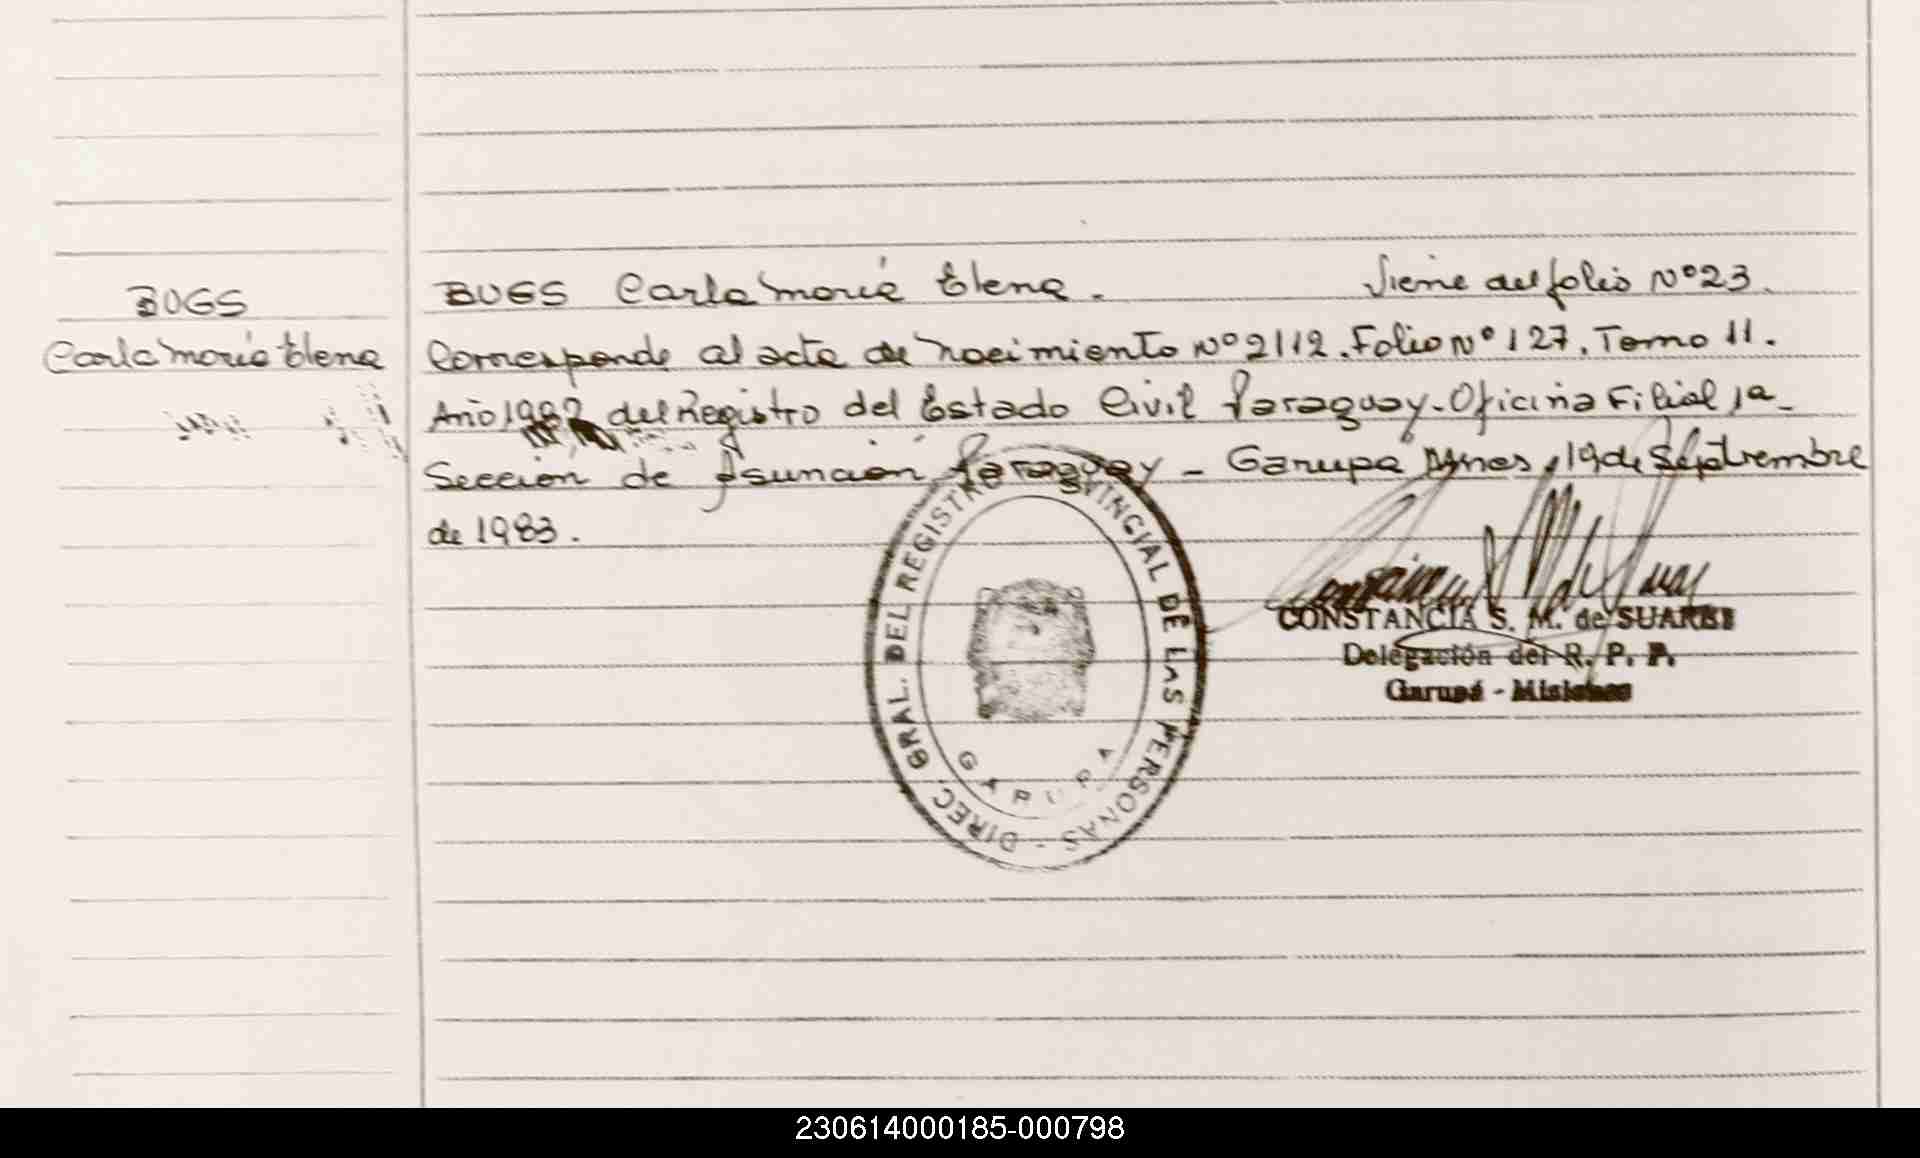 BUGS
Carla María Elena
BUGS Carla María Elena. Viene del folio Nº 23.
Corresponde al acta de Nacimiento Nº 2112. Folio Nº 127. Tomo 11.
Año 1982 del Registro del Estado Civil Paraguay - Oficina Filial 1a -
Sección de Asunción Paraguay - Garupá Mnes, 19 de Septiembre
de 1983.
DIREC. GRAL. DEL REGISTRO PROVINCIAL DE LAS PERSONAS -
GARUPA
CONSTANCIA S. M. de SUAREZ
Delegación del R. P. P.
Garupá - Misiones
230614000185-000798